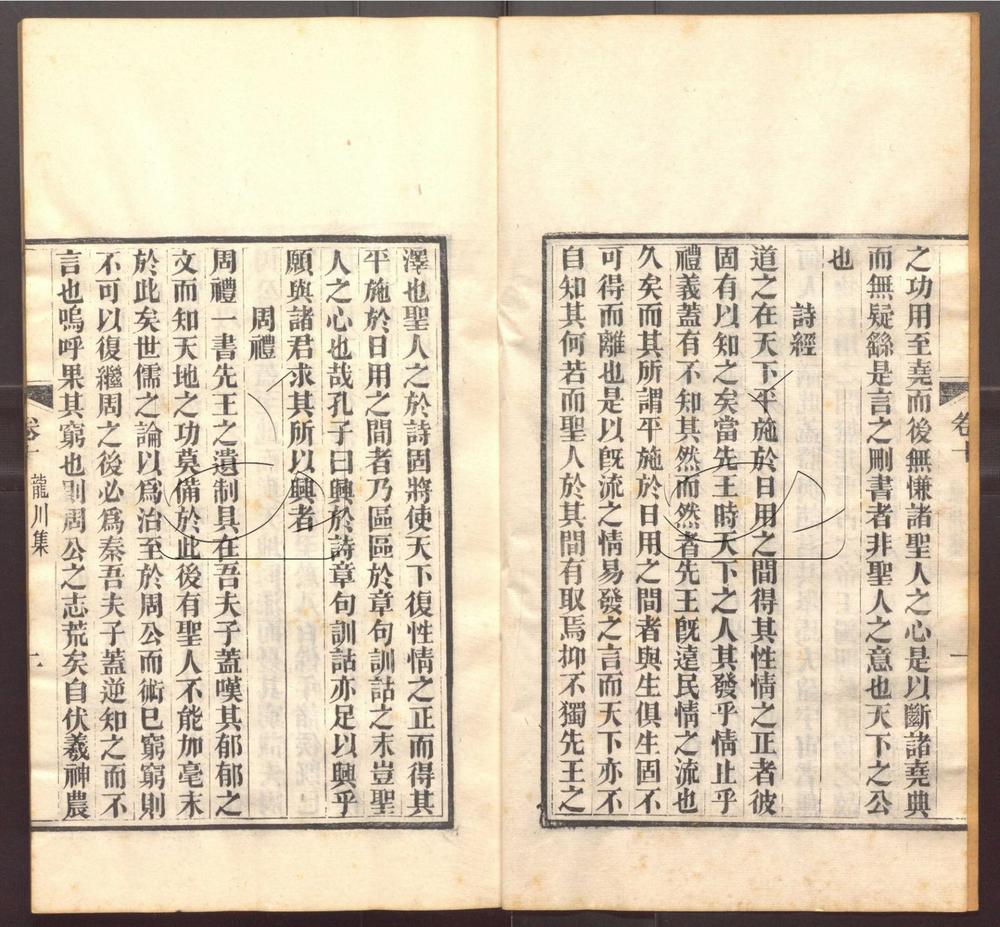 之功用至堯而後無慊諸聖人之心是以斷諸堯典
而無疑繇是言之刪書者非聖人之意也天下之公
也
詩經
道之在天下平施於日用之間得其性情之正者彼
固有以知之矣當先王時天下之人其發乎情止乎
禮義蓋有不知其然而然者先王旣遠民情之流也
久矣而其所謂平施於日用之間者與生俱生固不
可得而離也是以旣流之情易發之言而天下亦不
自知其何若而聖人於其間有取焉抑不獨先王之
澤也聖人之於詩固將使天下復性情之正而得其
平施於日用之間者乃區區於章句訓詁之末豈聖
人之心也哉孔子曰興於詩章句訓詁亦足以興乎
願與諸君求其所以興者
周禮
周禮一書先王之遺制具在吾夫子蓋嘆其郁郁之
文而知天地之功莫備於此後有聖人不能加毫末
於此矣世儒之論以爲治至於周公而術已窮窮則
不可以復繼周之後必爲秦吾夫子蓋逆知之而不
言也嗚呼果其窮也則周公之志荒矣自伏羲神農
卷十
一
龍川集